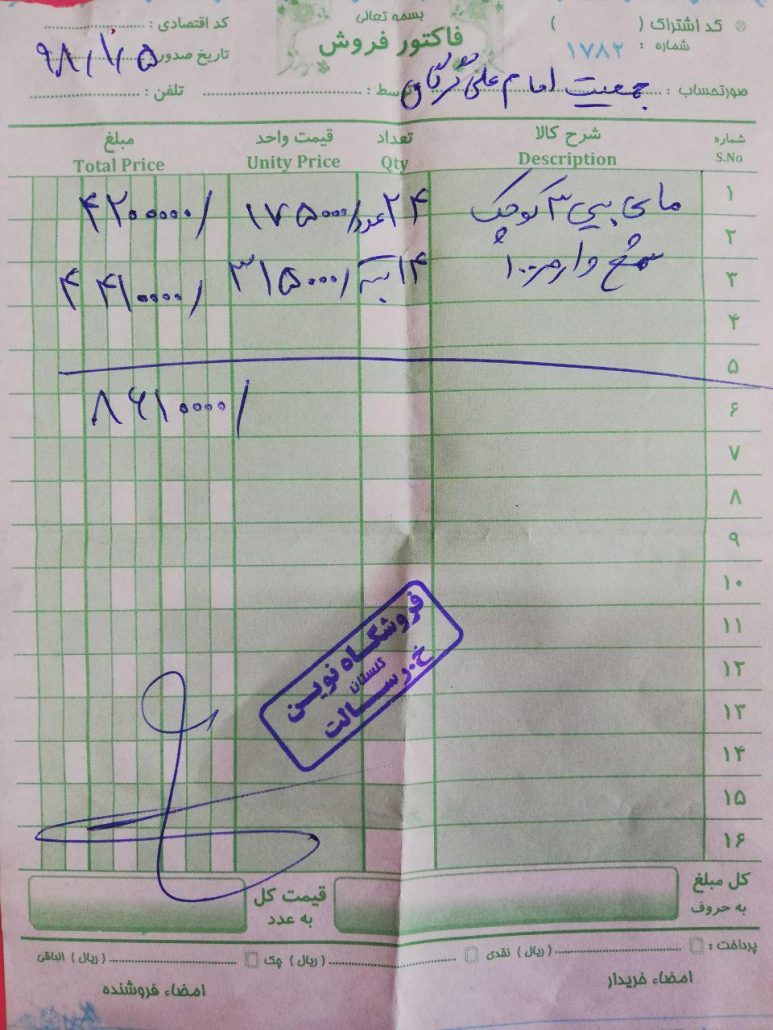 بسمه تعالی
فاکتور فروش
کد اشتراک ( )
شماره : ۱۷۸۲
کد اقتصادی :
تاریخ صدور ۹۸/۱/۵
صورتحساب : جمعیت امام علی گرگان
توسط :
تلفن :
شماره شرح کالا تعداد قیمت واحد مبلغ
S.No Description Qty Unity Price Total Price
۱ مای بیبی ۳ کوچک ۲۴ عدد ۱۷۵۰۰۰/ ۴۲۰۰۰۰۰/
۲
۳ شمع وارمر ۱۰۰ ۱۴ بسته ۳۱۵۰۰۰/ ۴۴۱۰۰۰۰/
۴
۵
۶ ۸۶۱۰۰۰۰/
۷
۸
۹
۱۰
۱۱
۱۲
۱۳
۱۴
۱۵
۱۶
فروشگاه نوین
گلستان
خ.رسالت
کل مبلغ به حروف
قیمت کل به عدد
پرداخت : (ریال) نقدی (ریال) چک (ریال) الباقی
امضاء خریدار
امضاء فروشنده